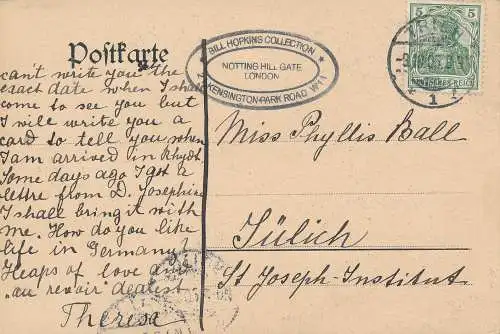 Postkarte
can't write you the
exact date when I shall
come to see you but
I will write you a
card to tell you when
I am arrived in Rhydt.
Some days ago I got a
lettre from D. Josephine
I shall bring it with
me. How do you like
life in Germany?
Heaps of love and
"au revoir" dealest.
Therese
BILL HOPKINS COLLECTION
NOTTING HILL GATE
LONDON
KENSINGTON PARK ROAD W11
5
5
DEUTSCHES REICH
1
Miss Phyllis Ball
Jülich
St Joseph-Institut.